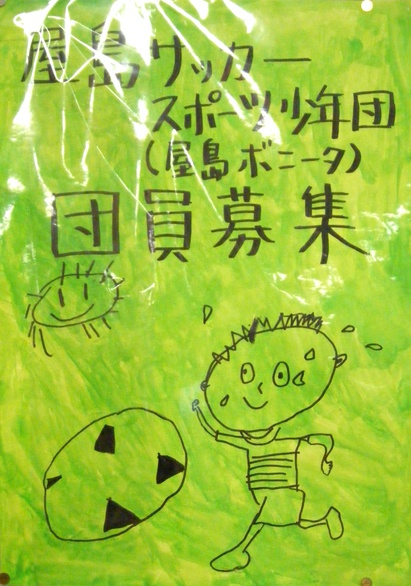 屋島サッカー
スポーツ少年団
(屋島ボニータ)
団員募集